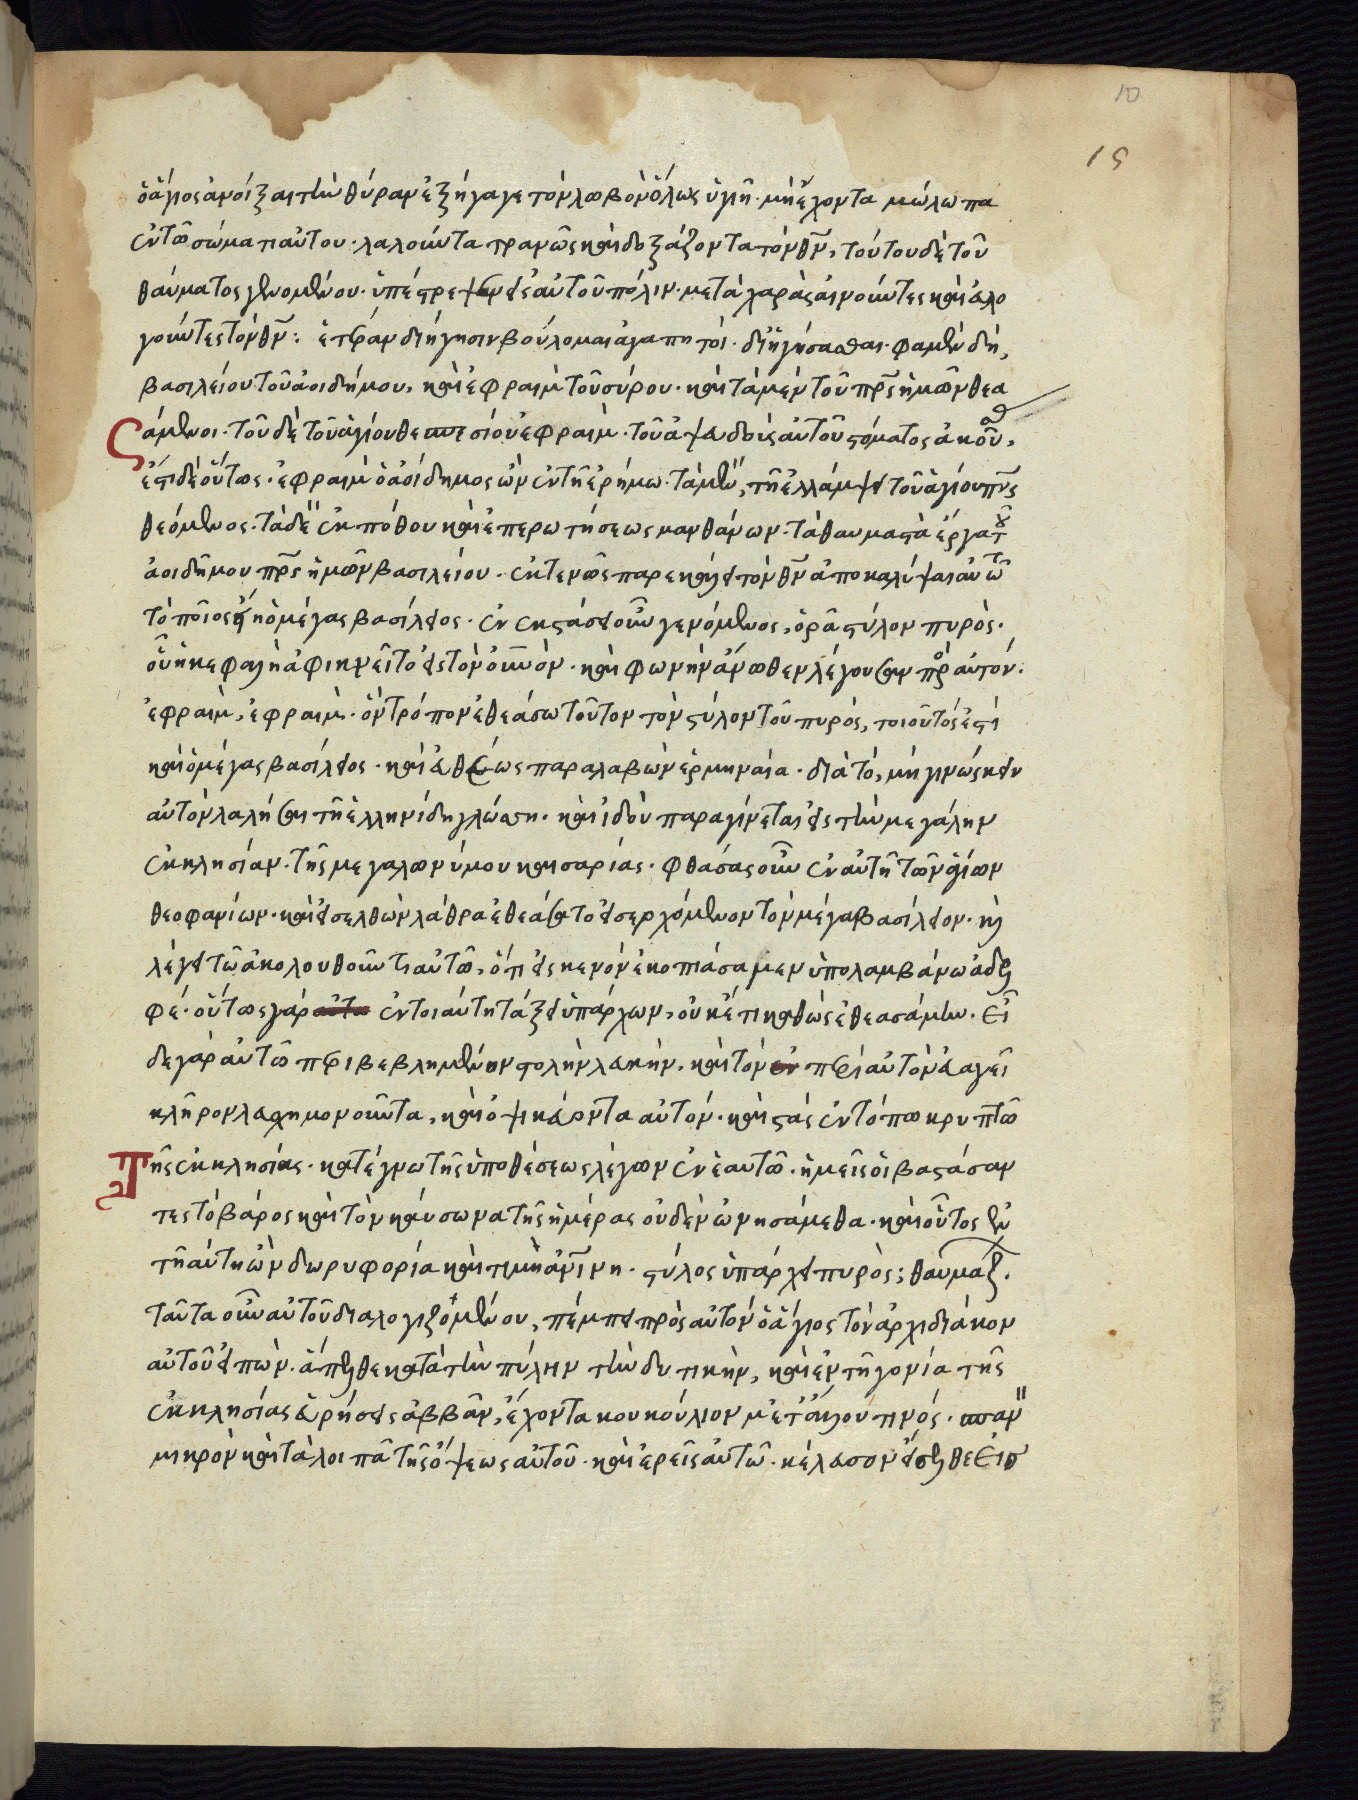 10
15
ὁ ἅγιος ἀνοίξας τὴν θύραν ἐξήγαγε τὸν λωβὸν ὅλως ὑγιῆ · μὴ ἔχοντα μώλωπα
ἐν τῶ σώματι αὐτου · λαλοῦντα τρανῶς καὶ δοξάζοντα τὸν θν̅, τούτου δὲ τοῦ
θαύματος γενομένου · ὑπέστρεψαν εἰς αὐτοῦ πόλιν · μετὰ χαρὰς αἰνοῦντες καὶ εὐλο
γοῦντες τὸν θν̅ : ἑτέραν διήγησιν βούλομαι ἀγαπητοί · διηγήσασθαι · φαμὲν δὴ,
βασιλείου τοῦ ἀοιδήμου, καὶ ἐφραὶμ τοῦ σύρου · καὶ τὰ μὲν τοῦ πρ̅ς ἡμῶν θεα
σάμενοι · τοῦ δὲ τοῦ ἁγίου θεσπεσίου ἐφραὶμ · τοῦ ἀψευδοῦς αὐτοῦ στόματος ἀκού,
ἔστι δὲ οὕτως · ἐφραιμ ὁ ἀοίδημος ὢν ἐν τῆ ἐρήμω · τὰ μὲν, τῆ ἐλλάμψει τοῦ ἁγίου πν̅ς
θεόμενος · τὰ δὲ ἐκ πόθου καὶ ἐπερωτήσεως μανθάνων · τὰ θαυμαστὰ ἔργα τοῦ
ἀοιδήμου πρ̅ς ἡμῶν βασιλείου · ἐκτενῶς παρεκάλει τὸν θν̅ ἀποκαλύψαι αὐτῶ
τὸ ποῖος ἦν ὁ μέγας βασίλειος · ἐν ἐκστάσει οὖν γενόμενος, ὁρᾶ στύλον πυρὸς ·
οὗ ἡ κεφαλὴ ἀφικνεῖτο εἰς τὸν οὐνὸν · καὶ φωνὴν ἄνωθεν λέγουσαν πρὸς αὐτόν :
ἐφραιμ, ἐφραιμ · ὃν τρόπον ἐθεάσω τοῦτον τὸν στύλον τοῦ πυρὸς, τοιοῦτός ἐστι
καὶ ὁ μέγας βασίλειος · καὶ εὐθέως παραλαβὼν ἑρμηναία · διὰ τὸ, μὴ γινώσκειν
αὐτὸν λαλῆσαι τῆ ἑλληνίδη γλώσση · καὶ ἰδοὺ παραγίνεται εἰς τὴν μεγάλην
ἐκκλησίαν · τῆς μεγαλωνύμου καισαρίας · φθάσας οὖν ἐν αὐτῆ τῶν ἁγίων
θεοφανίων · καὶ εἰσελθὼν λάθρα ἐθεάσατο εἰσερχόμενον τὸν μέγα βασίλειον · κὶ
λέγει τῶ ἀκολουθοῦντι αὐτῶ, ὅτι εἰς κενὸν ἐκοπιάσαμεν ὑπολαμβάνω ἀδελ
φέ · οὕτως γὰρ ἐν τοιαύτη τάξει ὑπάρχων, οὐκ ἔτι καθὼς ἐθεασάμην · εἶ
δε γὰρ αὐτῶ περιβεβλημένον στολὴν λευκήν, καὶ τὸν περὶ αὐτὸν εὐαγεῖ
κλῆρον λευχημονοῦντα, καὶ ὀψικεύοντα αὐτόν · καὶ στὰς ἐν τόπω κρυπτῶ
Τῆς ἐκκλησίας · κατέγνω τῆς ὑποθέσεως λέγων ἐν ἑαυτῶ · ἡμεῖς οἱ βαστάσαν
τες τὸ βάρος καὶ τὸν καύσωνα τῆς ἡμέρας οὐδὲν ὠνησάμεθα · καὶ οὗτος ἐν
τῆ αύτη ὢν δωρυφορία καὶ τιμὴ ἀνίνη · στύλος ὑπάρχει πυρός ; θαυμάζω.
ταῦτα οὖν αὐτοῦ διαλογιζομένου, πέμπει πρὸς αὐτὸν ὁ ἅγιος τὸν ἀρχιδιάκον
αὐτοῦ εἰπών · ἄπελθε κατὰ τὴν πύλην τὴν δυτικὴν, καὶ ἐν τῆ γονία τῆς
ἐκκλησίας εὑρήσεις ἀββᾶν, ἔχοντα κουκούλιον μετ' ἄλλου τινός · σπαν
μικρὸν καὶ τὰ λοιπᾶ τῆς ὄψεως αὐτοῦ · καὶ ἐρεῖς αὐτῶ · κέλευσον εἴσελθε εἰσ